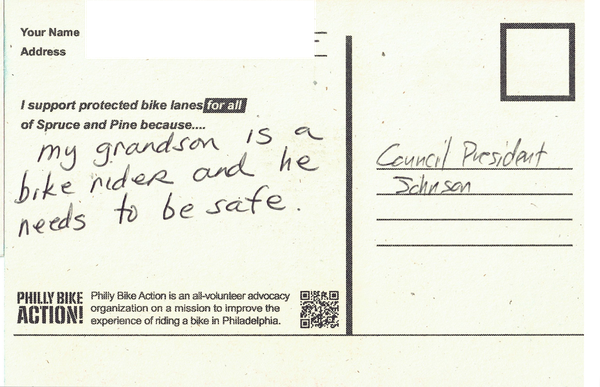 Your Name
Address
I support protected bike lanes for all
of Spruce and Pine because....
my grandson is a
bike rider and he
needs to be safe.
Council President
Johnson
PHILLY BIKE
ACTION!
Philly Bike Action is an all-volunteer advocacy
organization on a mission to improve the
experience of riding a bike in Philadelphia.